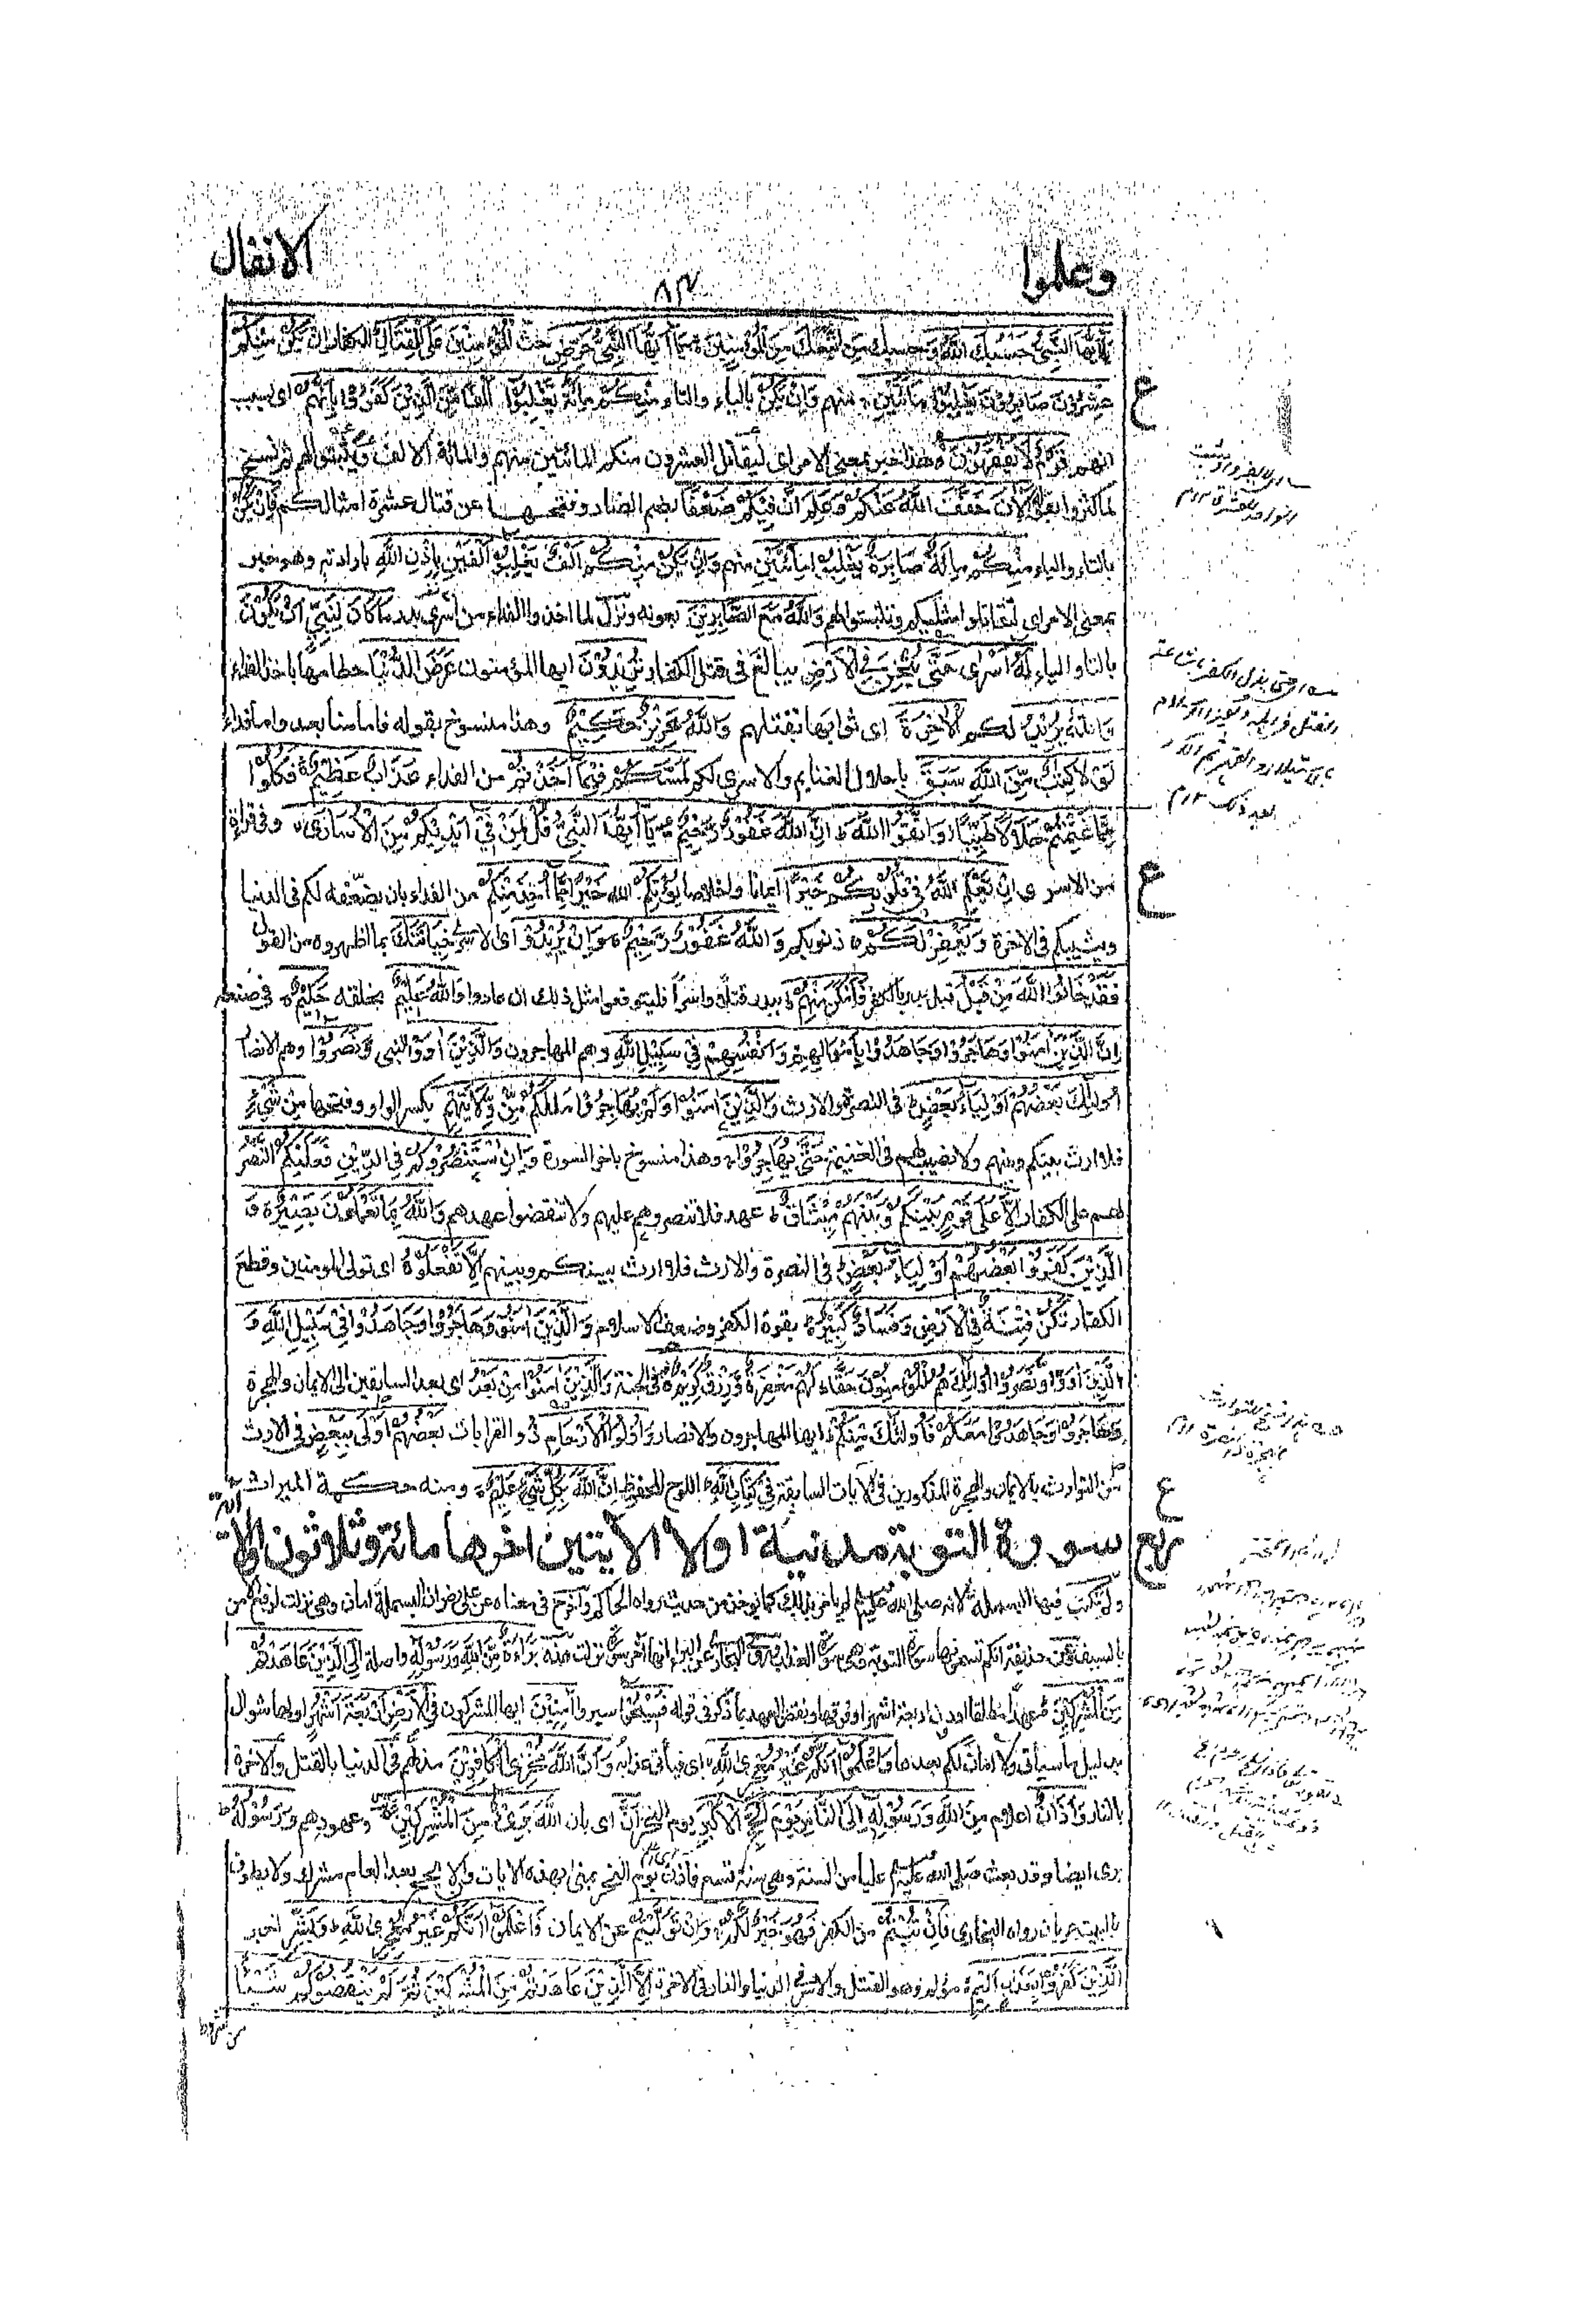 وعلموا
٨٣
الانفال
يٰٓاَيُّهَا النَّبِيُّ حَسْبُكَ اللّٰهُ وَحسبك مَنِ اتَّبَعَكَ مِنَ الْمُؤْمِنِيْنَ يٰٓاَيُّهَا النَّبِيُّ حَرِّضِ حث الْمُؤْمِنِيْنَ عَلَى الْقِتَالِ الكفار اِنْ يَّكُنْ مِّنْكُمْ
عِشْرُوْنَ صَابِرُوْنَ يَغْلِبُوْا مِائَتَيْنِ منهم وَاِنْ يَّكُنْ بالياء والتاء مِّنْكُمْ مِائَةٌ يَّغْلِبُوْا اَلْفًا مِّنَ الَّذِيْنَ كَفَرُوْا بِاَنَّهُمْ اى بسبب
انهم قَوْمٌ لَّا يَفْقَهُوْنَ وهذا خبر بمعنى الامر اى ليقاتل العشرون منكم المائتين منهم والمائة الالف ويثبتوا لهم ثم نسخ
لما كثروا بقوله اَلْاٰنَ خَفَّفَ اللّٰهُ عَنْكُمْ وَعَلِمَ اَنَّ فِيْكُمْ ضَعْفًا بضم الضاد وفتحها عن قتال عشرة امثالكم فَاِنْ يَّكُنْ
بالتاء والياء مِّنْكُمْ مِائَةٌ صَابِرَةٌ يَّغْلِبُوْا مِائَتَيْنِ منهم وَاِنْ يَّكُنْ مِّنْكُمْ اَلْفٌ يَّغْلِبُوْا اَلْفَيْنِ بِاِذْنِ اللّٰهِ بارادته وهو خبر
بمعنى الامر اى لتقاتلوا مثليكم وتثبتوا لهم وَاللّٰهُ مَعَ الصّٰبِرِيْنَ بعونه ونزل لما اخذوا الفداء من اسرى بدر مَا كَانَ لِنَبِيٍّ اَنْ يَّكُوْنَ
بالتاء والياء لَهٗٓ اَسْرٰى حَتّٰى يُثْخِنَ فِى الْاَرْضِ يبالغ فى قتل الكفار تُرِيْدُوْنَ ايها المؤمنون عَرَضَ الدُّنْيَا حطامها باخذ الفداء
وَاللّٰهُ يُرِيْدُ لكم الْاٰخِرَةَ اى ثوابها بقتلهم وَاللّٰهُ عَزِيْزٌ حَكِيْمٌ وهذا منسوخ بقوله فاما منا بعد واما فداء
لَوْلَا كِتٰبٌ مِّنَ اللّٰهِ سَبَقَ باحلال الغنايم والاسرى لكم لَمَسَّكُمْ فِيْمَآ اَخَذْتُمْ من الفداء عَذَابٌ عَظِيْمٌ فَكُلُوْا
مِمَّا غَنِمْتُمْ حَلٰلًا طَيِّبًا وَّاتَّقُوا اللّٰهَ اِنَّ اللّٰهَ غَفُوْرٌ رَّحِيْمٌ يٰٓاَيُّهَا النَّبِيُّ قُلْ لِّمَنْ فِيْٓ اَيْدِيْكُمْ مِّنَ الْاُسَارٰى وفى قراءة
من الاسرى اِنْ يَّعْلَمِ اللّٰهُ فِيْ قُلُوْبِكُمْ خَيْرًا ايمانا واخلاصا يُّؤْتِكُمْ الله خَيْرًا مِّمَّآ اُخِذَ مِنْكُمْ من الفداء بان يضعفه لكم فى الدنيا
ويثيبكم فى الاخرة وَيَغْفِرْ لَكُمْ ذنوبكم وَاللّٰهُ غَفُوْرٌ رَّحِيْمٌ وَاِنْ يُّرِيْدُوْا اى الاسرى خِيَانَتَكَ بما اظهروه من القول
فَقَدْ خَانُوا اللّٰهَ مِنْ قَبْلُ قبل بدر بالكفر فَاَمْكَنَ مِنْهُمْ ببدر قتلا واسرا فليتوقعوا مثل ذلك ان عادوا وَاللّٰهُ عَلِيْمٌ بخلقه حَكِيْمٌ فى صنعه
اِنَّ الَّذِيْنَ اٰمَنُوْا وَهَاجَرُوْا وَجَاهَدُوْا بِاَمْوَالِهِمْ وَاَنْفُسِهِمْ فِيْ سَبِيْلِ اللّٰهِ وهم المهاجرون وَالَّذِيْنَ اٰوَوْا النبى وَّنَصَرُوْٓا وهم الانصار
اُولٰٓئِكَ بَعْضُهُمْ اَوْلِيَآءُ بَعْضٍ فى النصرة والارث وَالَّذِيْنَ اٰمَنُوْا وَلَمْ يُهَاجِرُوْا مَا لَكُمْ مِّنْ وَّلَايَتِهِمْ بكسر الواو وفتحها مِّنْ شَيْءٍ
فلا ارث بينكم وبينهم ولا نصيب لهم فى الغنيمة حَتّٰى يُهَاجِرُوْا وهذا منسوخ باخر السورة وَاِنِ اسْتَنْصَرُوْكُمْ فِى الدِّيْنِ فَعَلَيْكُمُ النَّصْرُ
لهم على الكفار اِلَّا عَلٰى قَوْمٍ بَيْنَكُمْ وَبَيْنَهُمْ مِّيْثَاقٌ عهد فلا تنصروهم عليهم ولا تنقضوا عهدهم وَاللّٰهُ بِمَا تَعْمَلُوْنَ بَصِيْرٌ وَ
الَّذِيْنَ كَفَرُوْا بَعْضُهُمْ اَوْلِيَآءُ بَعْضٍ فى النصرة والارث فلا ارث بينكم وبينهم اِلَّا تَفْعَلُوْهُ اى تولى المومنين وقطع
الكفار تَكُنْ فِتْنَةٌ فِى الْاَرْضِ وَفَسَادٌ كَبِيْرٌ بقوة الكفر وضعف الاسلام وَالَّذِيْنَ اٰمَنُوْا وَهَاجَرُوْا وَجَاهَدُوْا فِيْ سَبِيْلِ اللّٰهِ وَ
الَّذِيْنَ اٰوَوْا وَّنَصَرُوْٓا اُولٰٓئِكَ هُمُ الْمُؤْمِنُوْنَ حَقًّا لَهُمْ مَّغْفِرَةٌ وَّرِزْقٌ كَرِيْمٌ فى الجنة وَالَّذِيْنَ اٰمَنُوْا مِنْۢ بَعْدُ اى بعد السابقين الى الايمان والهجرة
وَهَاجَرُوْا وَجَاهَدُوْا مَعَكُمْ فَاُولٰٓئِكَ مِنْكُمْ ايها المهاجرون والانصار وَاُولُوا الْاَرْحَامِ ذوو القرابات بَعْضُهُمْ اَوْلٰى بِبَعْضٍ فى الارث
من التوارث بالايمان والهجرة المذكورين فى الايات السابقة فِيْ كِتَابِ اللّٰهِ اللوح المحفوظ اِنَّ اللّٰهَ بِكُلِّ شَيْءٍ عَلِيْمٌ ومنه حكمة الميراث
سورة التوبة مدنية اولا الايتين اخرها مائة وثلاثون اوالا اية
ولم تكتب فيها البسملة لانه صلى الله عليه وسلم لم يامر بذلك كما يوخذ من حديث رواه الحاكم واخرج فى معناه عن على رض ان البسملة امان وهى نزلت لرفع الامن
بالسيف وعن حذيفة انكم تسمونها سورة التوبة وهى سورة العذاب وروى البخارى عن البراء انها اخر سورة نزلت هذه بَرَآءَةٌ مِّنَ اللّٰهِ وَرَسُوْلِهٖٓ واصلة اِلَى الَّذِيْنَ عَاهَدْتُّمْ
مِّنَ الْمُشْرِكِيْنَ عهدا مطلقا او دون اربعة اشهر او فوقها ونقض العهد بما ذكر فى قوله فَسِيْحُوْا سيروا آمنين ايها المشركون فِى الْاَرْضِ اَرْبَعَةَ اَشْهُرٍ اولها شوال
بدليل ما سيأتى ولا امان لكم بعدها وَاعْلَمُوْٓا اَنَّكُمْ غَيْرُ مُعْجِزِى اللّٰهِ اى فائتى عذابه وَاَنَّ اللّٰهَ مُخْزِى الْكَافِرِيْنَ مذلهم فى الدنيا بالقتل والاخرة
بالنار وَاَذَانٌ اعلام مِّنَ اللّٰهِ وَرَسُوْلِهٖٓ اِلَى النَّاسِ يَوْمَ الْحَجِّ الْاَكْبَرِ يوم النحر اَنَّ اى بان اللّٰهَ بَرِيْٓءٌ مِّنَ الْمُشْرِكِيْنَ وعهودهم وَرَسُوْلُهٗ
برى ايضا وقد بعث صلى الله عليه وسلم عليا من السنة وهى سنة تسع فاذن يوم النحر بمنى بهذه الايات وان لا يحج بعد العام مشرك ولا يطوف
بالبيت عريان رواه البخارى فَاِنْ تُبْتُمْ من الكفر فَهُوَ خَيْرٌ لَّكُمْ وَاِنْ تَوَلَّيْتُمْ عن الايمان فَاعْلَمُوْٓا اَنَّكُمْ غَيْرُ مُعْجِزِى اللّٰهِ وَبَشِّرِ اخبر
الَّذِيْنَ كَفَرُوْا بِعَذَابٍ اَلِيْمٍ مؤلم وهو القتل والاسر فى الدنيا والنار فى الاخرة اِلَّا الَّذِيْنَ عَاهَدْتُّمْ مِّنَ الْمُشْرِكِيْنَ ثُمَّ لَمْ يَنْقُصُوْكُمْ شَيْئًا
من شروط
ع
ع
ع
ربع